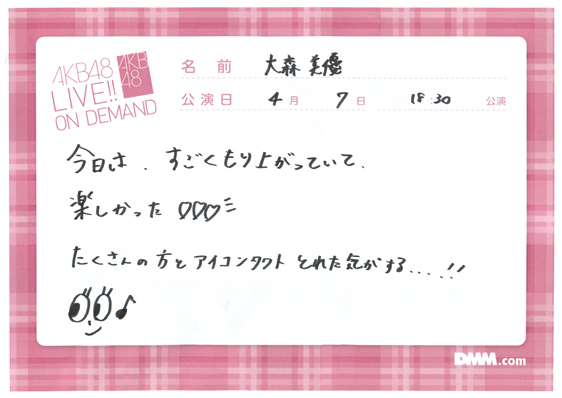 AKB48
LIVE!!
ON DEMAND
AKB
48
名前 大森美優
公演日 4月 7日 18:30 公演
今日は、すごくもり上がっていて、
楽しかった ♡♡♡
たくさんの方とアイコンタクトとれた気がする....!!
♪
DMM.com